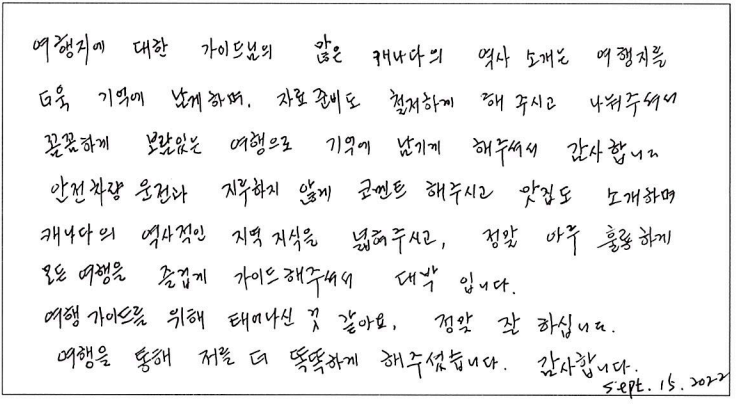 여행지에 대한 가이드님의 많은 캐나다의 역사 소개는 여행지를
더욱 기억에 남게하며, 자료준비도 철저하게 해 주시고 나눠주셔서
꼼꼼하게 보람있는 여행으로 기억에 남기게 해주셔서 감사합니다
안전차량 운전과 지루하지 않게 코멘트 해주시고 맛집도 소개하며
캐나다의 역사적인 지역 지식을 넓혀주시고, 정말 아주 훌륭하게
모든 여행을 즐겁게 가이드해주셔서 대박 입니다.
여행 가이드를 위해 태어나신 것 같아요. 정말 잘 하십니다.
여행을 통해 저를 더 똑똑하게 해주셨습니다. 감사합니다.
Sept. 15. 2022